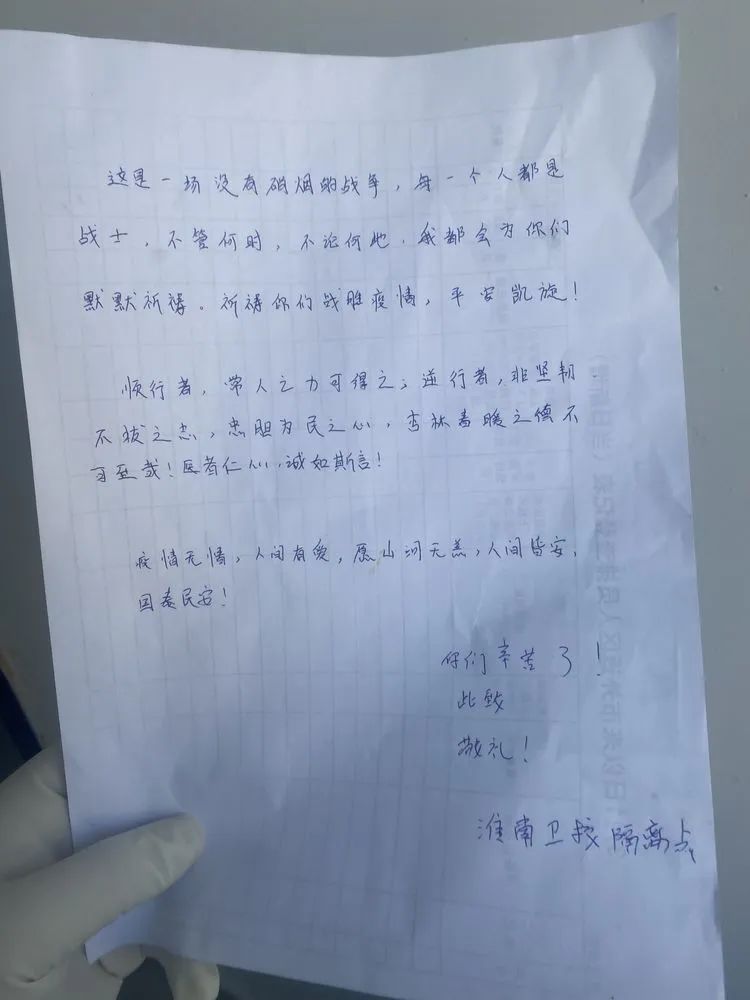 这是一场没有硝烟的战争，每一个人都是
战士，不管何时，不论何地，我都会为你们
默默祈祷。祈祷你们战胜疫情，平安凯旋！
顺行者，常人之力可得之；逆行者，非坚韧
不拔之志，忠胆为民之心，杏林春暖之德不
可至哉！医者仁心，诚如斯言！
疫情无情，人间有爱，愿山河无恙，人间皆安，
国泰民安！
你们辛苦了！
此致
敬礼！
淮南卫校隔离点